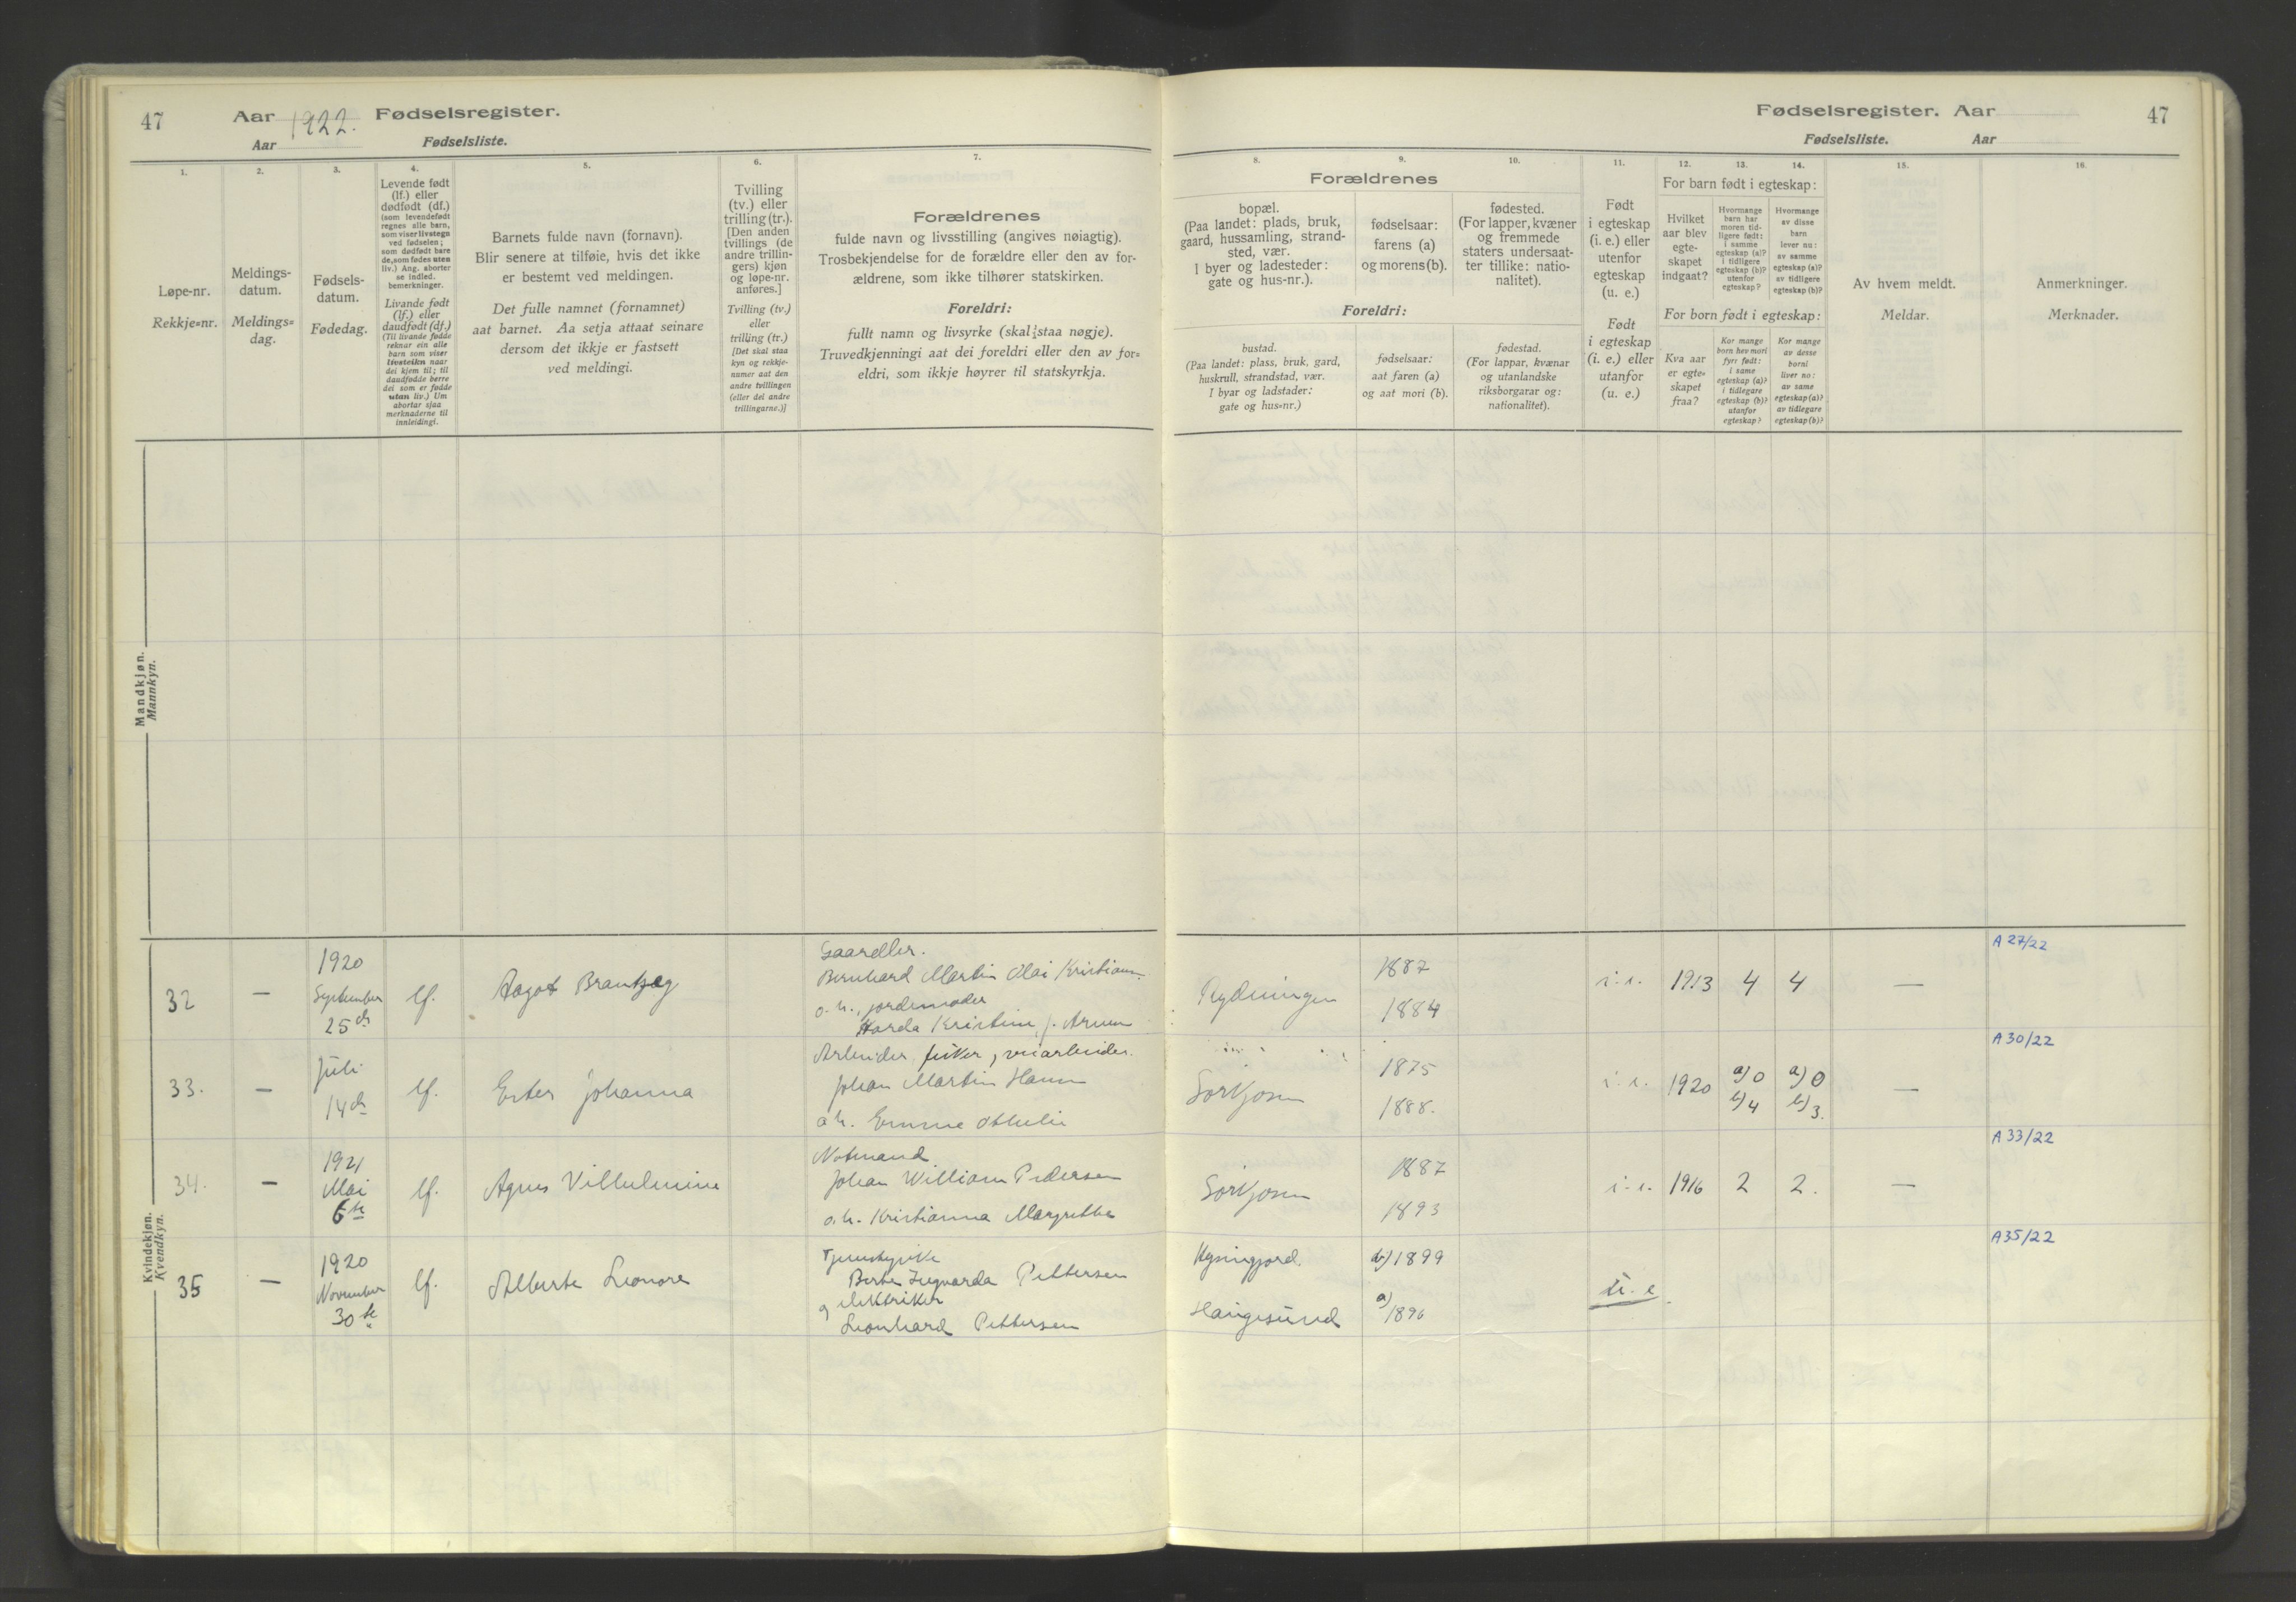 47 Aar 1922. Fødselsregister.
Aar Fødselsliste.
1. 2. 3. 4. 5. 6. 7.
Løpe-nr.
Rekkje=nr.
Meldings-
datum.
Meldings=
dag.
Fødsels-
datum.
Fødedag.
Levende født
(lf.) eller
dødfødt (df.)
(som levendefødt
regnes alle barn,
som viser livstegn
ved fødselen;
som dødfødt bare
de, som fødes uten
liv.) Ang. aborter
se indled.
bemerkninger.
Livande født
(lf.) eller
daudfødt (df.)
(Til livande fødde
reknar ein alle
barn som viser
livsteikn naar
dei kjem til; til
daudfødde berre
dei som er fødde
utan liv.) Um
abortar sjaa
merknaderne til
innleidingi.
Barnets fulde navn (fornavn).
Blir senere at tilføie, hvis det ikke
er bestemt ved meldingen.
Det fulle namnet (fornamnet)
aat barnet. Aa setja attaat seinare
dersom det ikkje er fastsett
ved meldingi.
Tvilling
(tv.) eller
trilling (tr.).
[Den anden
tvillings (de
andre trillin-
gers) kjøn
og løpe-nr.
anføres.]
Tvilling (tv.)
eller
trilling (tr.)
[Det skal staa
kyn og rekkje-
numer aat den
andre tvillingen
(eller dei andre
trillingarne.)]
Forældrenes
fulde navn og livsstilling (angives nøiagtig).
Trosbekjendelse for de forældre eller den av for-
ældrene, som ikke tilhører statskirken.
Foreldri:
fullt namn og livsyrke (skal staa nøgje).
Truvedkjenningi aat dei foreldri eller den av for=
eldri, som ikkje høyrer til statskyrkja.
Mandkjøn.
Mannkyn.
32 — 1920 September 25de lf. Aagot Brantzeg
Gaardbr.
Bernhard Martin Olai Kristians.
o. h., jordemoder
Harda Kristine, f. Arnen
33. — Juli 14de lf. Ester Johanna
Arbeider, fisker, veiarbeider.
Johan Martin Hansen
o h. Emma Othelie
34. — 1921 Mai 6te lf. Agnes Villielmine
Notmand
Johan William Pedersen
o. h. Kristianna Margrethe
Kvindekjøn.
Kvendkyn.
35 — 1920 November 30te lf. Alberte Leonore
Tjenestepike
Berte Ingvarda Pettersen
og elektriker
Leonhard Pettersen
Fødselsregister. Aar 47
Fødselsliste. Aar
8. 9. 10. 11. 12. 13. 14. 15. 16.
Forældrenes
bopæl.
(Paa landet: plads, bruk,
gaard, hussamling, strand-
sted, vær.
I byer og ladesteder:
gate og hus-nr.).
fødselsaar:
farens (a)
og morens (b).
fødested.
(For lapper, kvæner
og fremmede
staters undersaat-
ter tillike: natio-
nalitet).
Foreldri:
bustad.
(Paa landet: plass, bruk, gard,
huskrull, strandstad, vær.
I byar og ladstader:
gate og hus=nr.)
fødselsaar:
aat faren (a)
og aat mori (b).
fødestad.
(For lappar, kvænar
og utanlandske
riksborgarar og:
nationalitet).
Født
i egteskap
(i. e.) eller
utenfor
egteskap
(u. e.)
Født
i egteskap
(i. e.) eller
utanfor
(u. e.)
For barn født i egteskap:
Hvilket
aar blev
egte-
skapet
indgaat?
Hvormange
barn har
moren tid-
ligere født:
i samme
egteskap (a)?
i tidligere
egteskap (b)?
utenfor
egteskap?
Hvormange
av disse
barn
lever nu:
av samme
egteskap (a)?
av tidligere
egteskap (b)?
For born født i egteskap:
Kva aar
er egte-
skapet
fraa?
Kor mange
born hev mori
fyrr født:
i same
egteskap (a)?
i tidlegare
egteskap (b)?
utanfor
egteskap?
Kor mange
av desse
borni
liver no:
av same
egteskap (a)?
av tidlegare
egteskap (b)?
Av hvem meldt.
Meldar.
Anmerkninger.
Merknader.
A 27/22
Rydningen 1887 1884 i. e. 1913 4 4 —
A 30/22
Sørkjosen 1875 1888. i. e. 1920 a) 0 b) 4 a) 0 b) 3. —
A 33/22
Sørkjosen 1887 1893 i. e. 1916 2 2. —
A 35/22
b) 1899 u. e.
Haugesund a) 1896